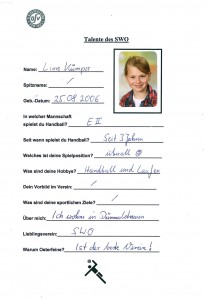 Talente des SWO
Name: Line Kümper
Spitzname: /
Geb.-Datum: 25.08.2006
In welcher Mannschaft
spielst du Handball? E II
Seit wann spielst du Handball? Seit 3 Jahren
Welches ist deine Spielposition? überall ☺
Was sind deine Hobbys? Handball und Laufen
Dein Vorbild im Verein: /
Was sind deine sportlichen Ziele? /
Über mich: Ich wohne in
Lieblingsverein: SWO
Warum Osterfeine? Ist der beste Verein!